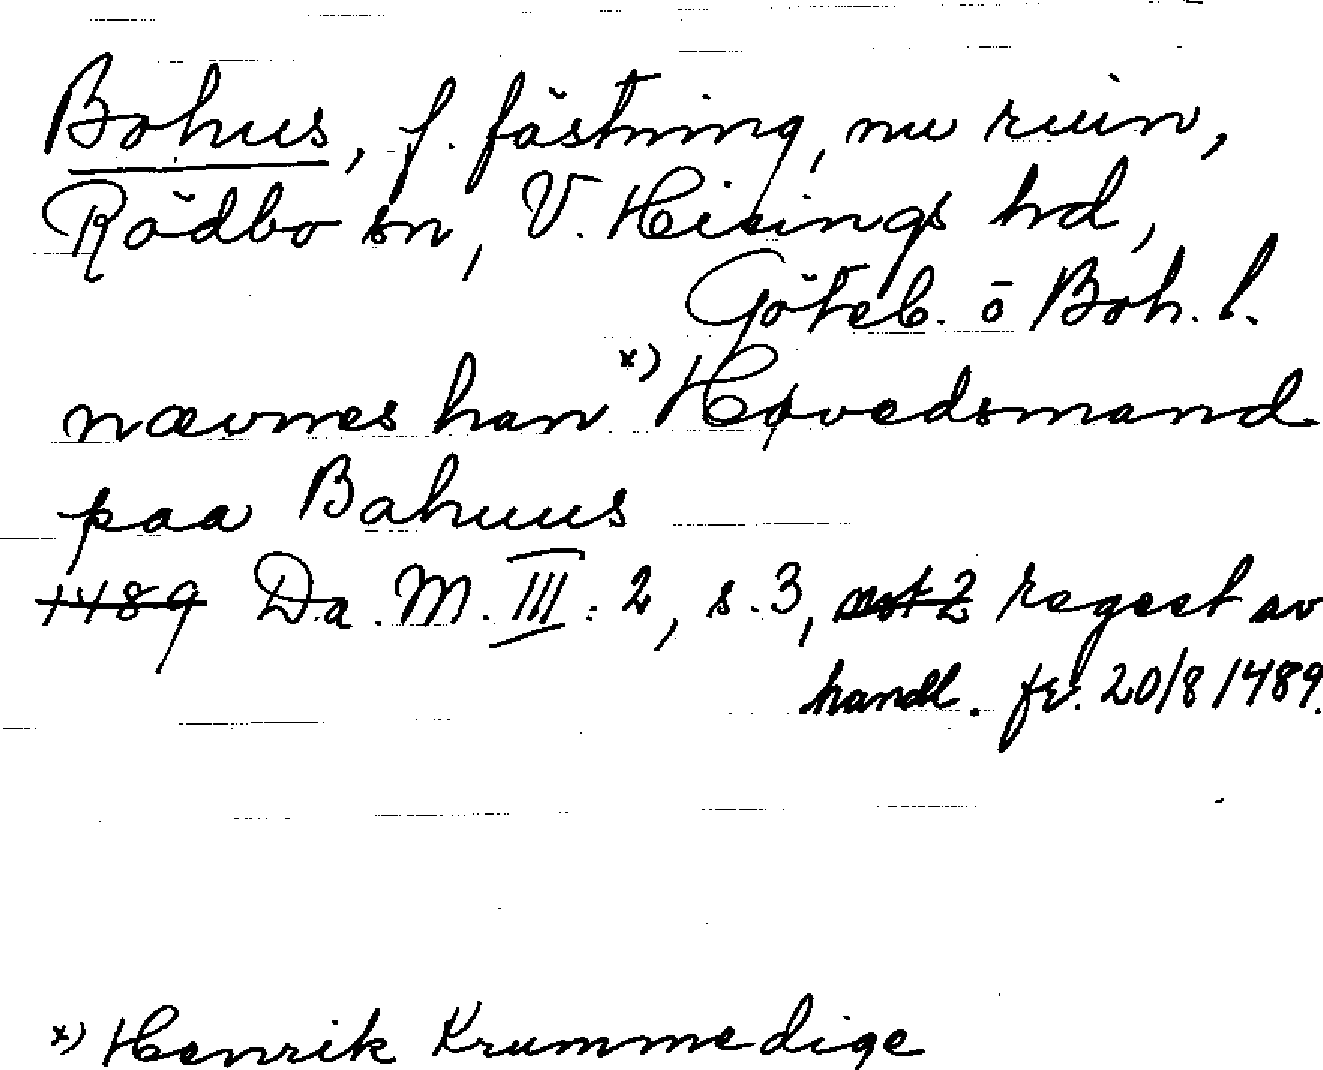 Bohus, f. fästning, nu ruin,
Rödbo sn, V. Hisings hd,
Göteb. o Boh. l.
nævnes han x) Høvedsmand
paa Bahuus
1489 Da. M. III: 2, s. 3, not 2 regest av
handl. fr. 20/8 1489.
x) Henrik Krummedige